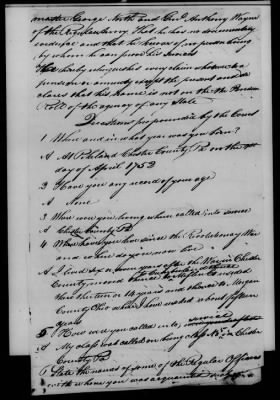 master George North and Genl Anthony Wayne
of the Regular Army That he has no documentary
evidence and that he knows of no person living
by whom he can prove his services
He hereby relinquishes every claim whatever to a
pension or annuity except the present and de
clares that his name is not on the Pension
Roll of the agency of any State
Questions propounded by the Court
1 Where and in what year were you born?
A At Pikeland Chester County Pa on the
day of April 1752
2 Have you any record of your age
A None
3 Where were you living when called into service
A Chester County Pa
4 Where have you lived since the Revolutionary War
and where do you now live
A I lived six or seven years after the War in Chester
County moved thence to
lived there ten or 14 years and thence to Morgan
County Ohio where I have resided about fifteen
years
5 How were you called into service
A My class was called on being class No 5 in Chester
County Pa
6 State the names of some of the Regular Officers
with whom you was acquainted